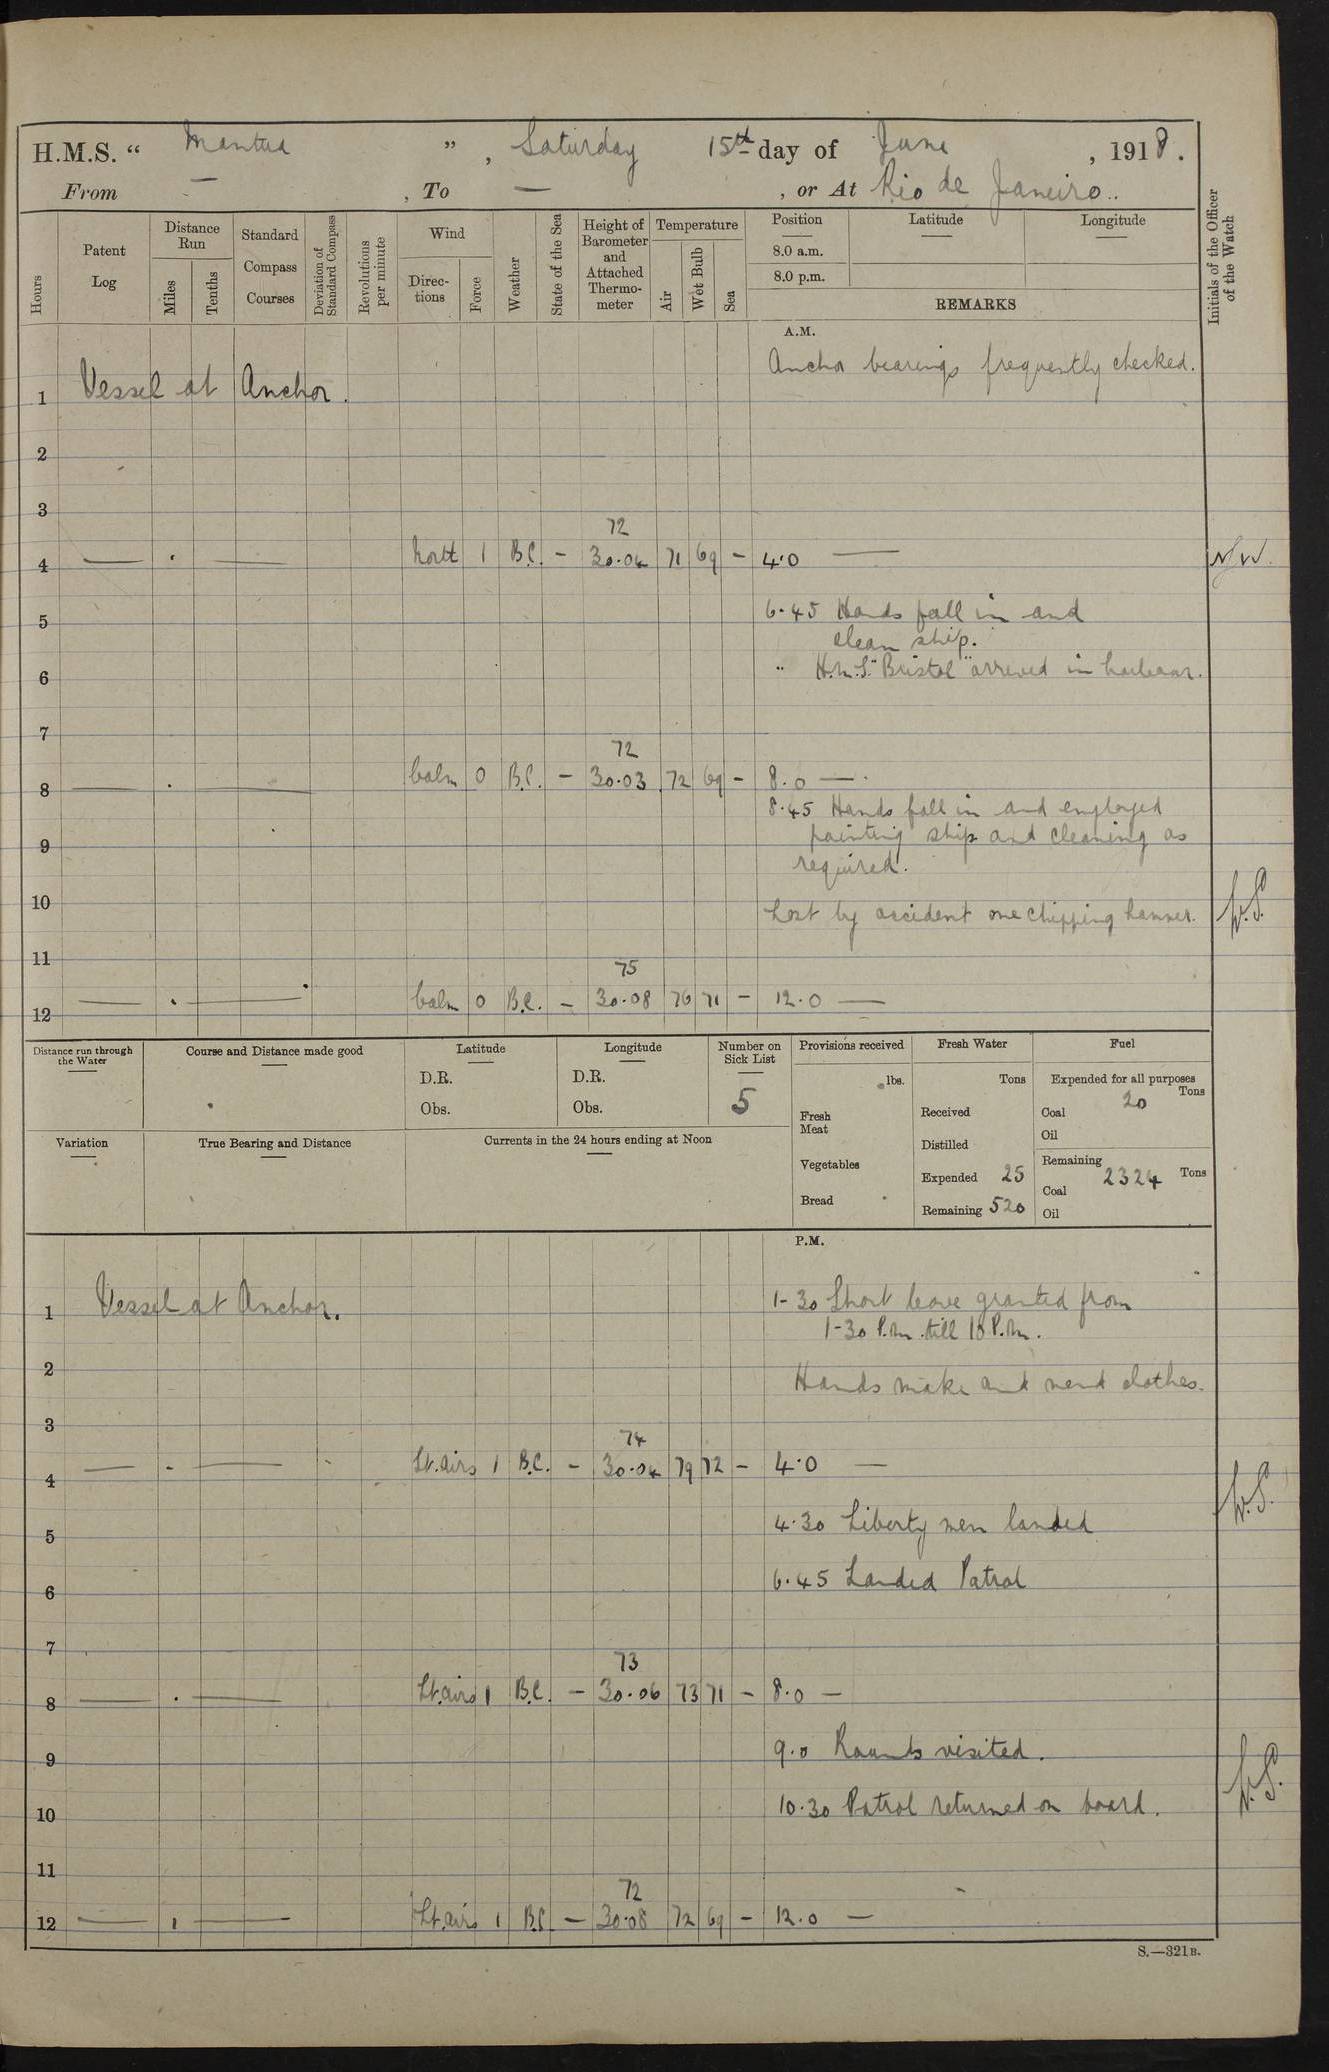 H.M.S. “ Mantua ” , Saturday 15th day of June , 1918.
From — , To — , or At Rio de Janeiro..
Hours
Patent Log
Distance Run
Miles
Tenths
Standard Compass Courses
Deviation of Standard Compass
Revolutions per minute
Wind
Directions
Force
Weather
State of the Sea
Height of Barometer and Attached Thermometer
Temperature
Air
Wet Bulb
Sea
Position Latitude Longitude
8.0 a.m.
8.0 p.m.
REMARKS
Initials of the Officer of the Watch
A.M.
Anchor bearings frequently checked.
1 Vessel at Anchor.
2
3
72
4 — . — North 1 B.C. — 30.04 71 69 — 4.0 —
6.45 Hands fall in and
5
clean ship.
" H.M.S. "Bristol" arrived in harbour.
6
7
72
8 — . — Calm 0 B.C. — 30.03 72 69 — 8.0 — .
8.45 Hands fall in and employed
painting ship and cleaning as
9
required.
10 Lost by accident one chipping hammer. W.S.
11
75
12 — . — Calm 0 B.C. — 30.08 76 71 — 12.0 —
Distance run through the Water
Course and Distance made good
Latitude
D.R.
Obs.
Longitude
D.R.
Obs.
Number on Sick List
5
Variation
True Bearing and Distance
Currents in the 24 hours ending at Noon
Provisions received
lbs.
Fresh Meat
Vegetables
Bread
Fresh Water
Tons
Received
Distilled
Expended 25
Remaining 520
Fuel
Expended for all purposes
Coal 20 Tons
Oil
Remaining
Coal 2324 Tons
Oil
P.M.
1 Vessel at Anchor. 1-30 Short leave granted from
1-30 P.M. till 10 P.M.
2
Hands make and mend clothes.
3
74
4 — - — Lt. airs 1 B.C. — 30.04 79 72 — 4.0 —
W.S.
5 4.30 Liberty men landed
6 6.45 Landed Patrol
7
73
8 — . — Lt. airs 1 B.C. — 30.06 73 71 — 8.0 —
9 9.0 Rounds visited.
W.S.
10 10.30 Patrol returned on board.
11
72
12 — . — Lt. airs 1 B.C. — 30.08 72 69 — 12.0 —
S.—321B.